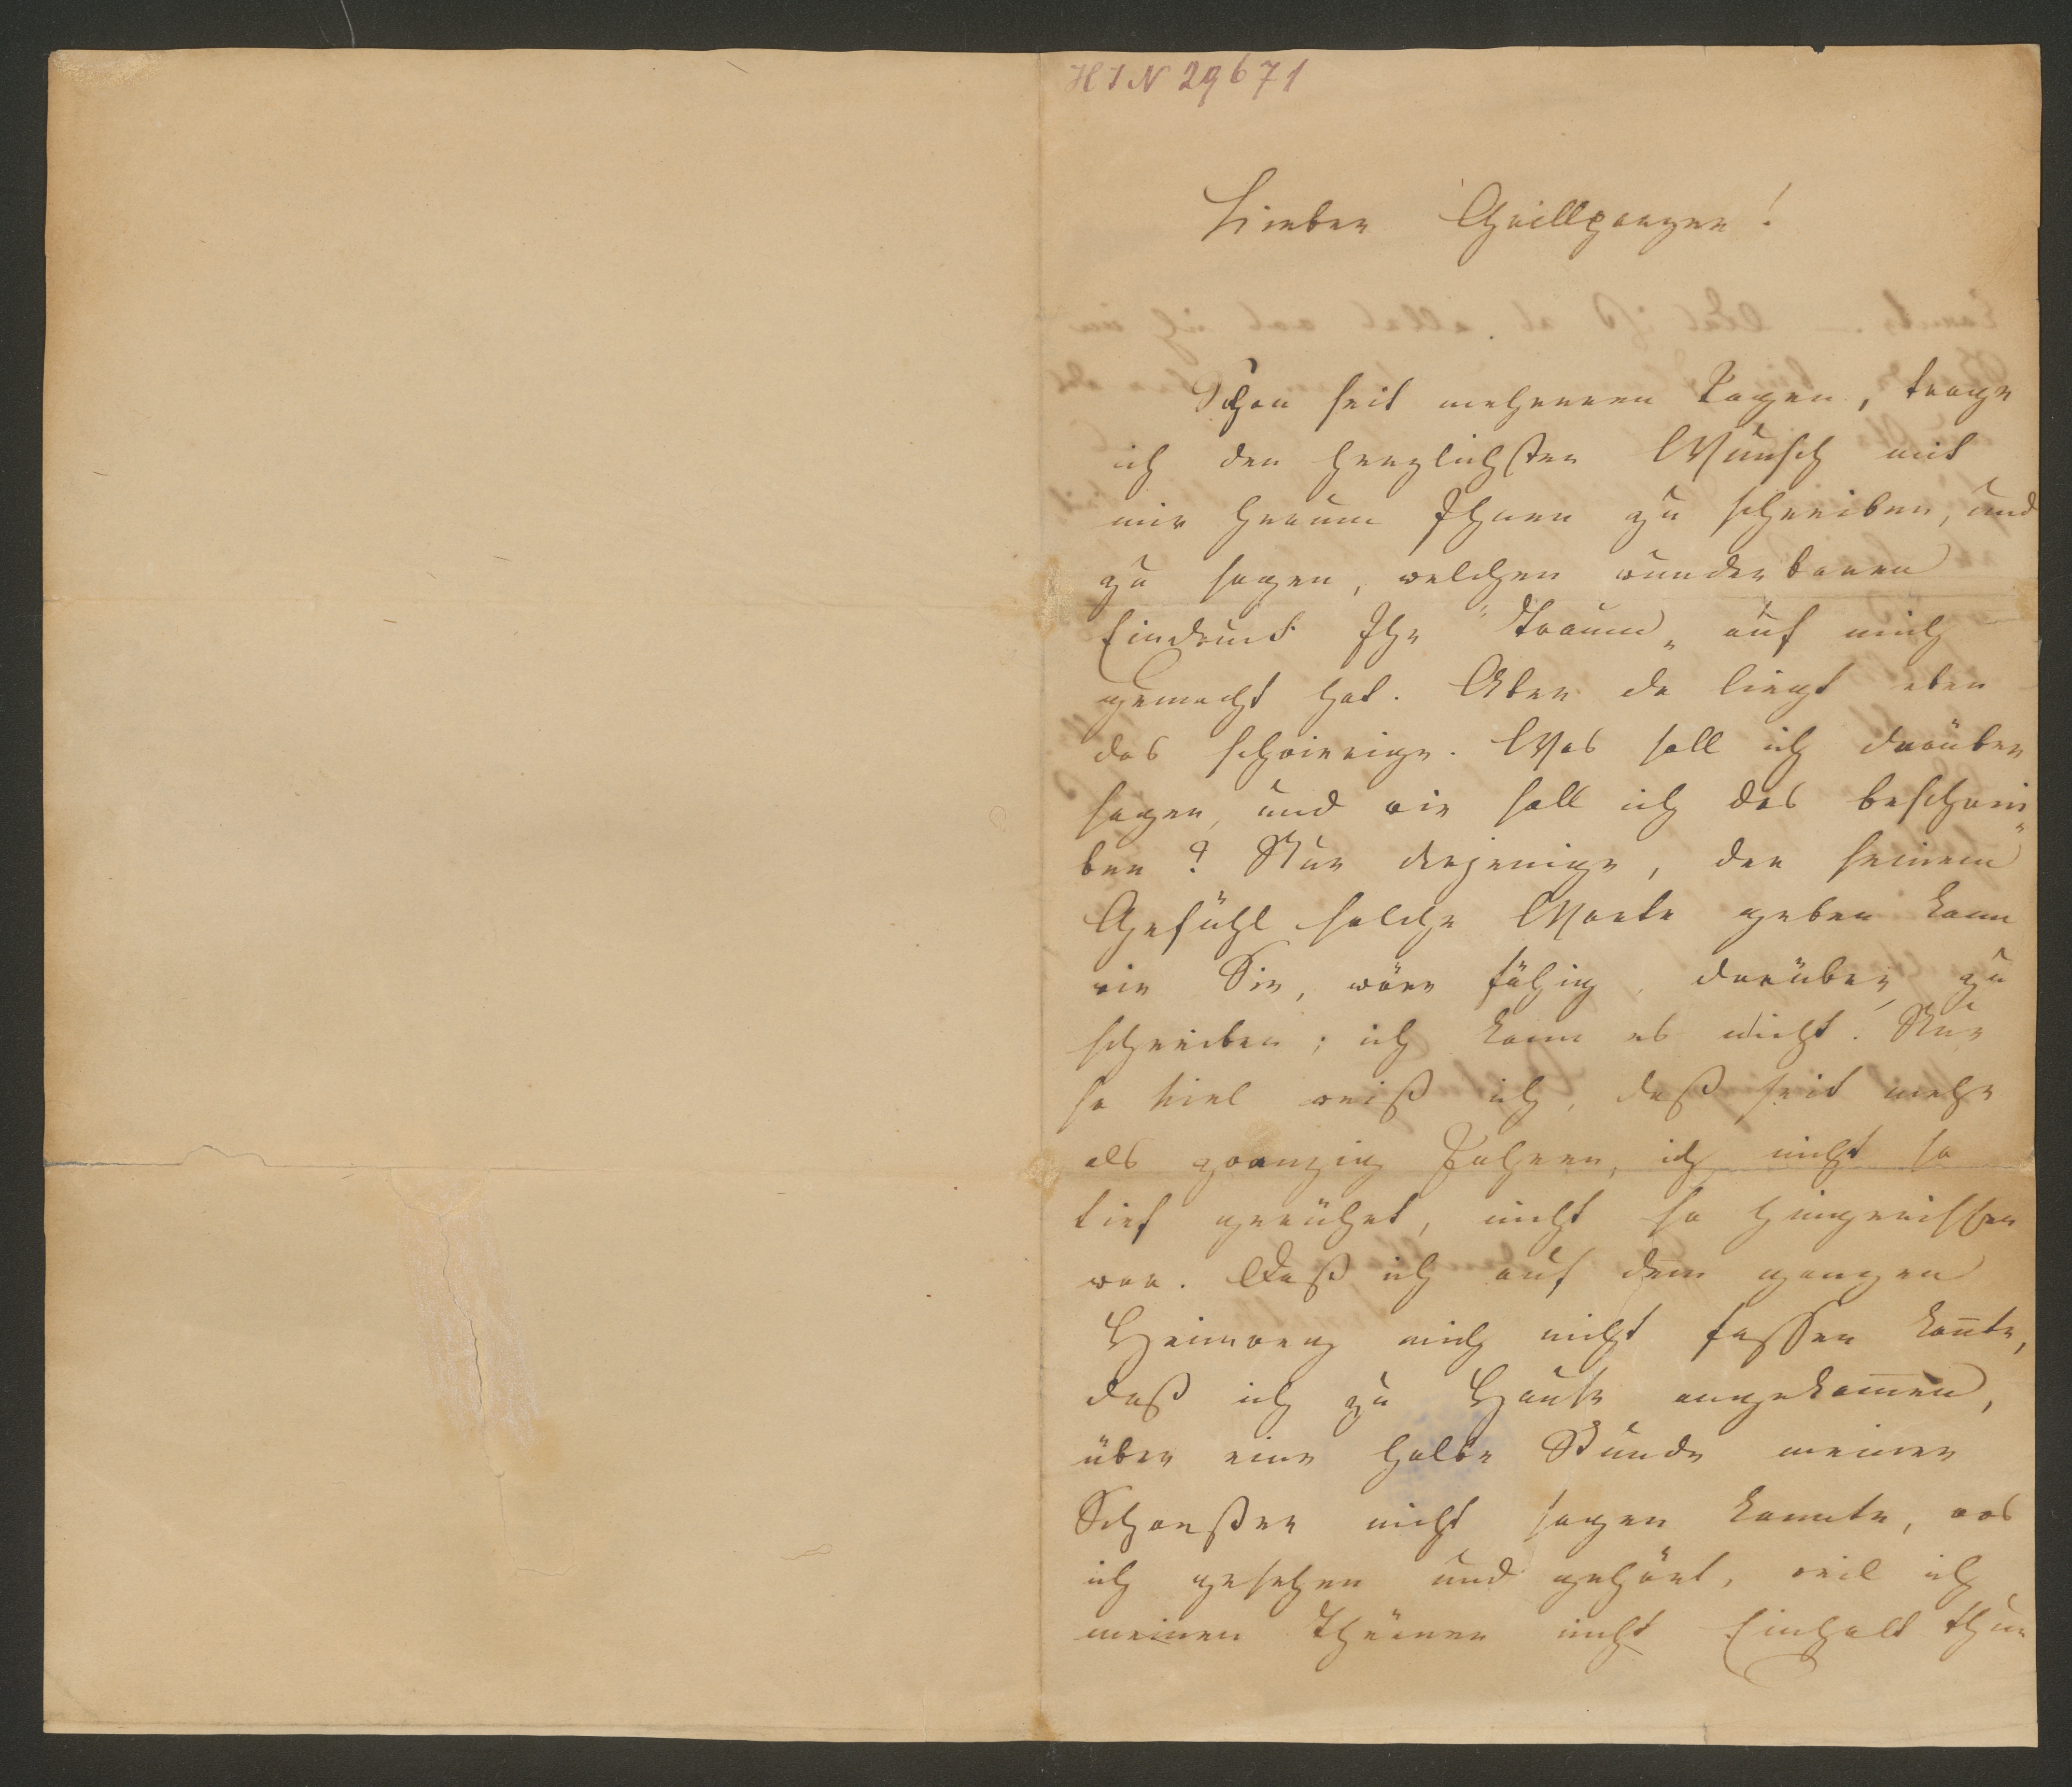 HIN 29671
Lieber Grillparzer!
Schon seit mehreren Tagen, trage
ich den herzlichsten Wunsch mit
mir herum Ihnen zu schreiben, und
zu sagen, welchen wunderbaren
Eindruck Ihr "Traum„ auf mich
gemacht hat. Aber da liegt eben
das schwierige. Was soll ich darüber
sagen, und wie soll ich das beschrei„
ben? Nur derjenige, der seinem
Gefühl solche Worte geben kann
wie Sie, wäre fähig, darüber zu
schreiben; ich kann es nicht. Nur
so viel weiß ich, daß seit mehr
als zwanzig Jahren, ich nicht so
tief gerührt, nicht so hingerissen
war. Daß ich auf dem ganzen
Heimweg mich nicht fassen kon̄te,
daß ich zu Hause angekom̄en,
über eine halbe Stunde meiner
Schwester nicht sagen konnte, was
ich gesehen und gehört, weil ich
meinen Thränen nicht Einhalt thun